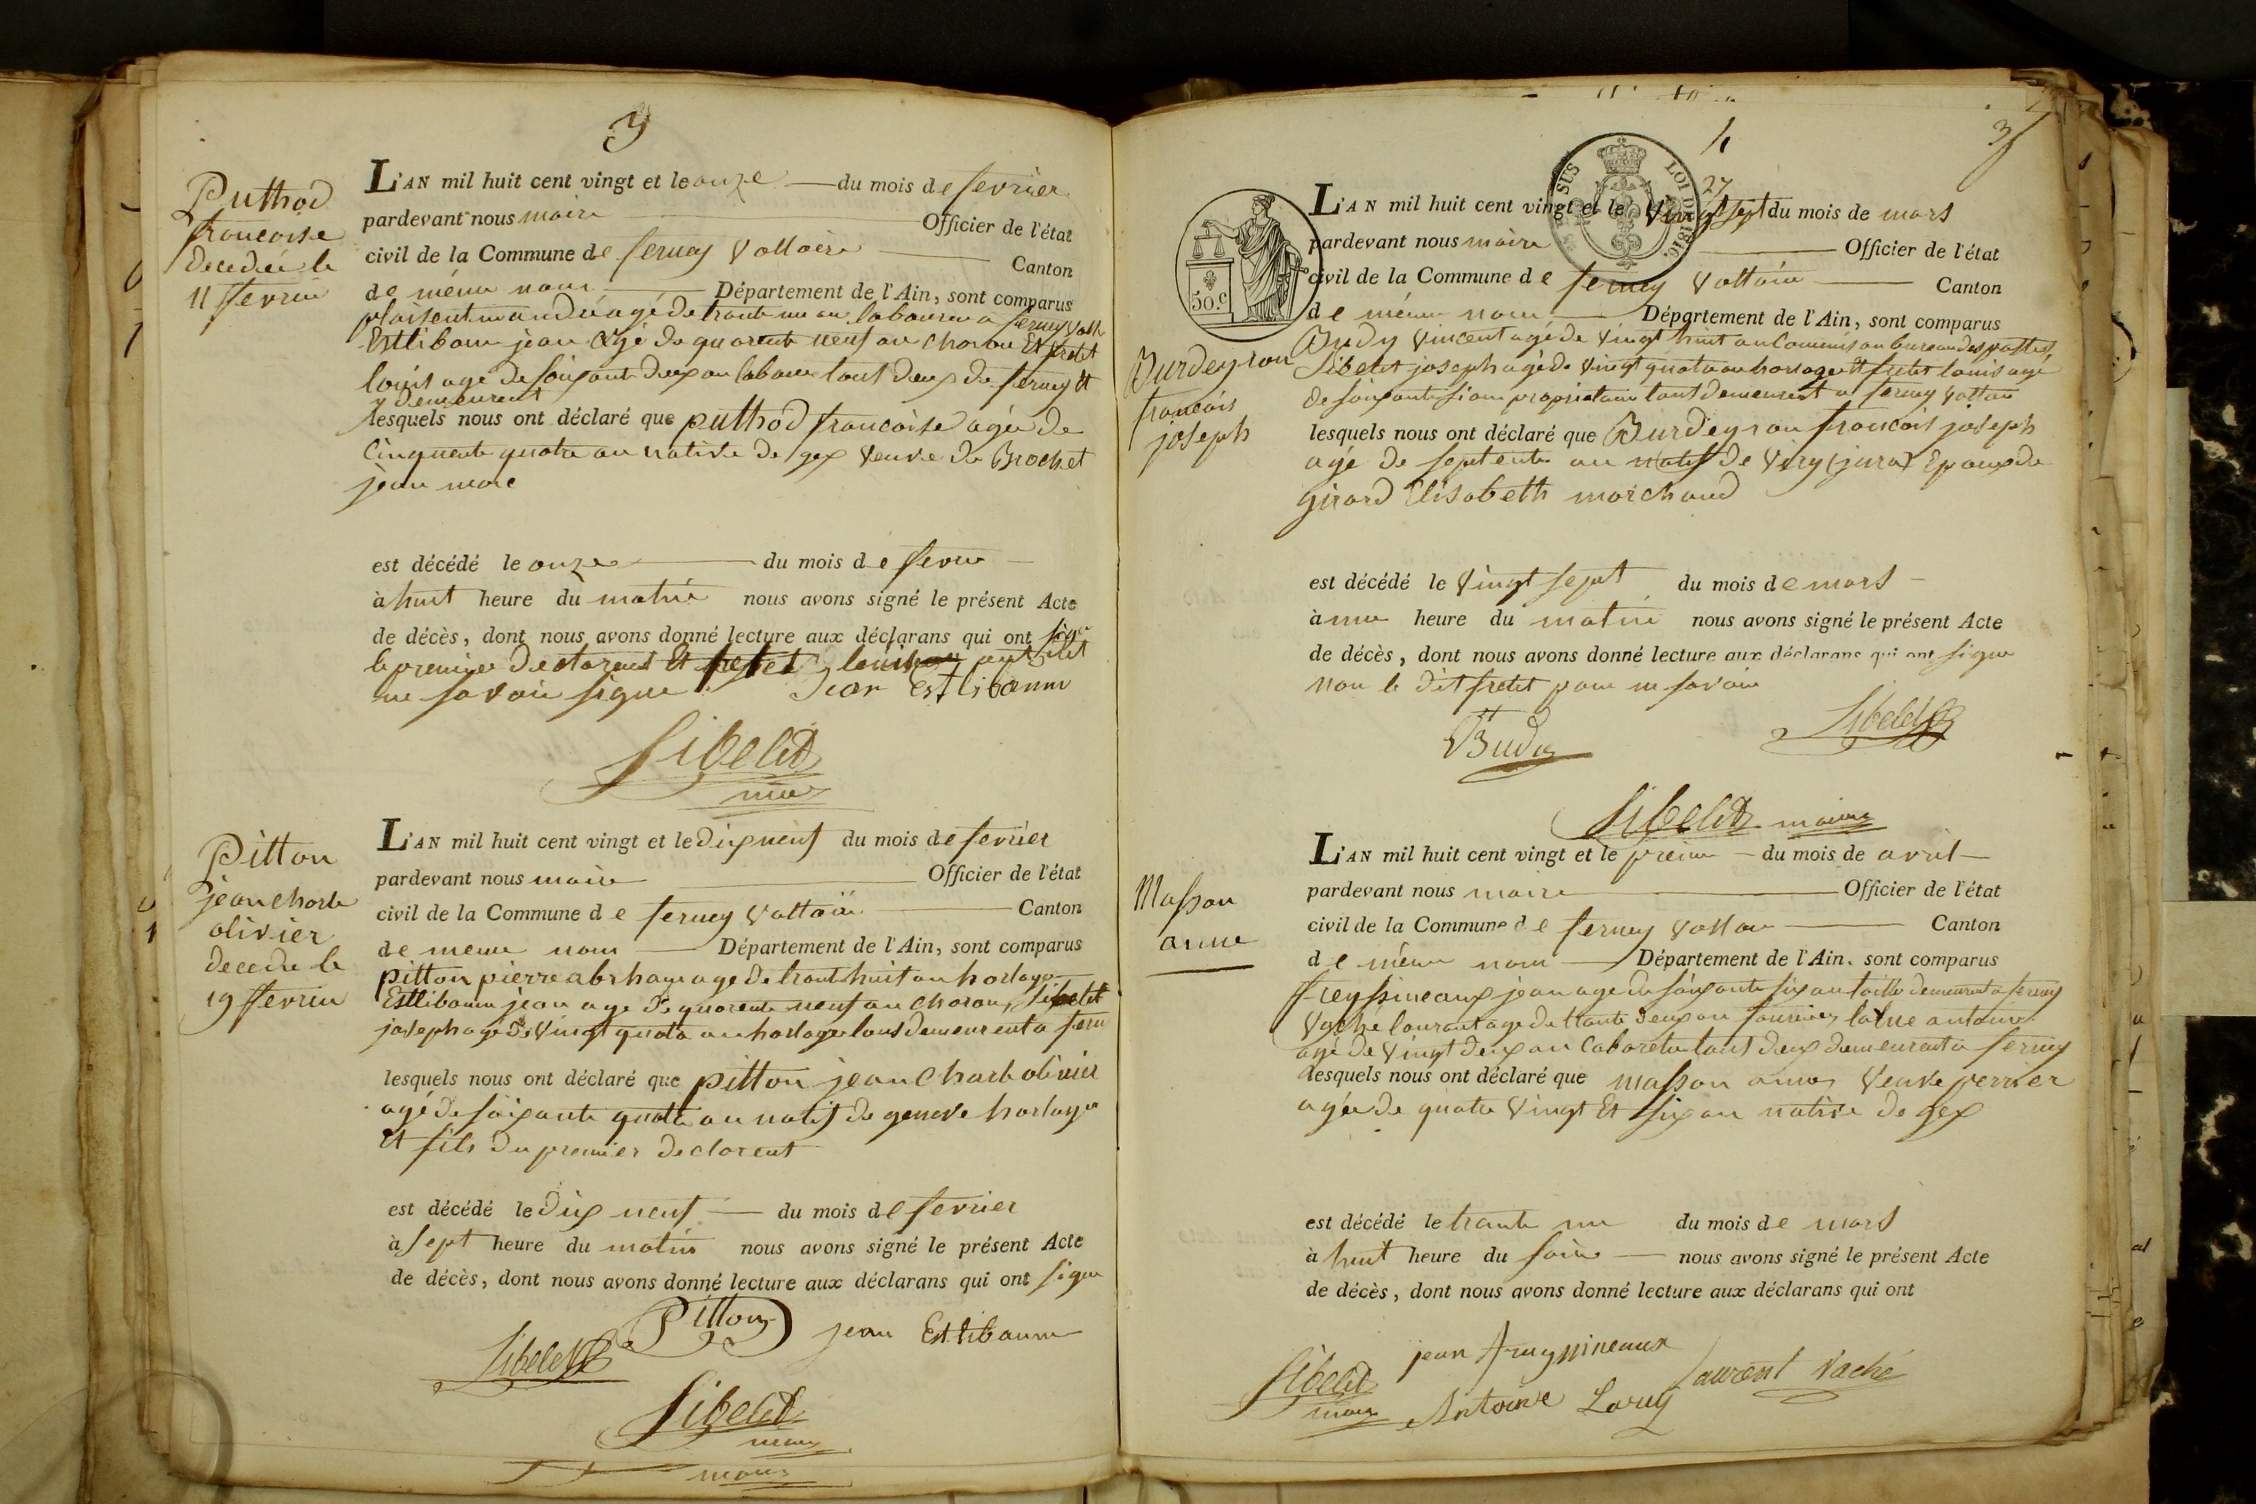 3
Puthod
francoise
decedée le
11 fevrier
L'AN mil huit cent vingt et le onze du mois de fevrier
pardevant nous maire Officier de l'état
civil de la Commune de ferney Voltaire Canton
de méme nom Département de l'Ain, sont comparus
agé de trante un an laboureur a ferney Volt
Estlibaum jean agé de quarente neuf an charon Et fretit
louis age de soixante deux an tout deux de ferney Et
y demeurent
lesquels nous ont déclaré que puthod francoise agée de
Cinquente quatre an native de gex Veuve de Brochet
jean marc
est décédé le onze du mois de fevrier
à huit heure du matin nous avons signé le présent Acte
de décès, dont nous avons donné lecture aux déclarans qui ont signé
le premier declarent Et louis
ne savoir signe. Jean Estlibaum
Sibelit
maire
Pitton
jean charle
olivier
decede le
19 fevrier
L'AN mil huit cent vingt et le dix neuf du mois de fevrier
pardevant nous maire Officier de l'état
civil de la Commune de ferney Voltaire Canton
de meme nom Département de l'Ain, sont comparus
pitton pierre abrham age de trante huit an horloge
Estlibaum jean age de quarente neuf an charon, Sibelit
joseph age de Vingt quatre an horloge tous demeurent a fern
lesquels nous ont déclaré que pitton jean charle olivier
agé de soixante quatre an natif de geneve horloge
Et fils du premier declarent
est décédé le dix neuf du mois de fevrier
à sept heure du matin nous avons signé le présent Acte
de décès, dont nous avons donné lecture aux déclarans qui ont signe
Pitton jean Estlibaum
Sibelit
Sibelit
maire
maire
4
3
SUS LOI DE 1816.
50.c
27
Burdeyron
francois
joseph
L'AN mil huit cent vingt et le Vingt sept du mois de mars
pardevant nous maire Officier de l'état
civil de la Commune de ferney Voltaire Canton
de méme nom Département de l'Ain, sont comparus
Budy Vincent agé de Vingt huit an Commis au bureau des postes,
Sibelit joseph agé de Vingt quatre an horloge Et fretit louis age
de soixante proprietaire tout demeurent a ferney Voltaire
lesquels nous ont déclaré que Burdeyron francois joseph
agé de septente an natif de Viry (jura) Epoux de
girard Elisabeth marchand
est décédé le Vingt sept du mois de mars
à une heure du matin nous avons signé le présent Acte
de décès, dont nous avons donné lecture aux déclarans qui ont signe
non le dit fretit pour ne savoir
Budy
Sibelit
Sibelit maire
Masson
anne
L'AN mil huit cent vingt et le premier du mois de avril
pardevant nous maire Officier de l'état
civil de la Commune de ferney Voltaire Canton
de méme nom Département de l'Ain, sont comparus
freyssineaux jean age de soixante six an demeurent a ferney
Vaché laurant age de trante deux an larue antoine
agé de Vingt deux an Cabaretie tout deux demeurent a ferney
lesquels nous ont déclaré que masson anne Veuve perrier
agée de quatre Vingt Et six an native de gex
est décédé le trante un du mois de mars
à huit heure du soir nous avons signé le présent Acte
de décès, dont nous avons donné lecture aux déclarans qui ont
jean frayssineaux
Sibelit
maire
laurent Vaché
Antoine Laruy